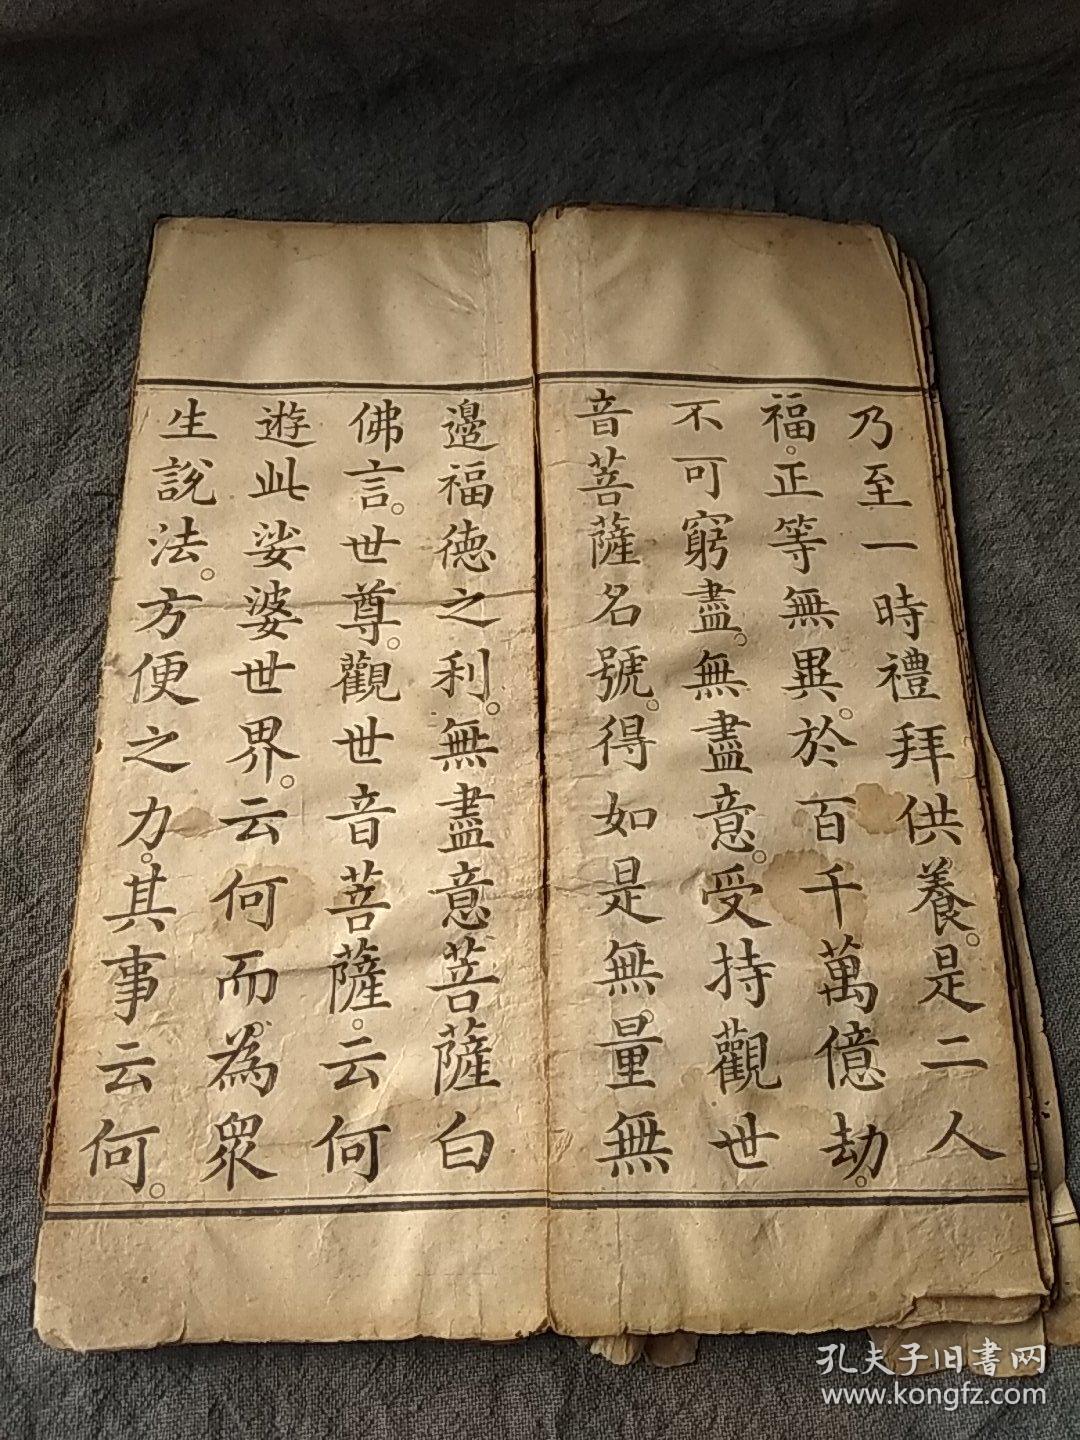 乃至一時禮拜供養。是二人
福。正等無異。於百千萬億劫。
不可窮盡。無盡意。受持觀世
音菩薩名號。得如是無。量無
邊福德之利。無盡意菩薩白
佛言。世尊。觀世音菩薩。云何
遊此娑婆世界。云何而。為眾
生說法。方便之力。其事云何。
孔夫子旧書网
www.kongfz.com